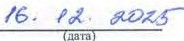 16. 12. 2025
(дата)